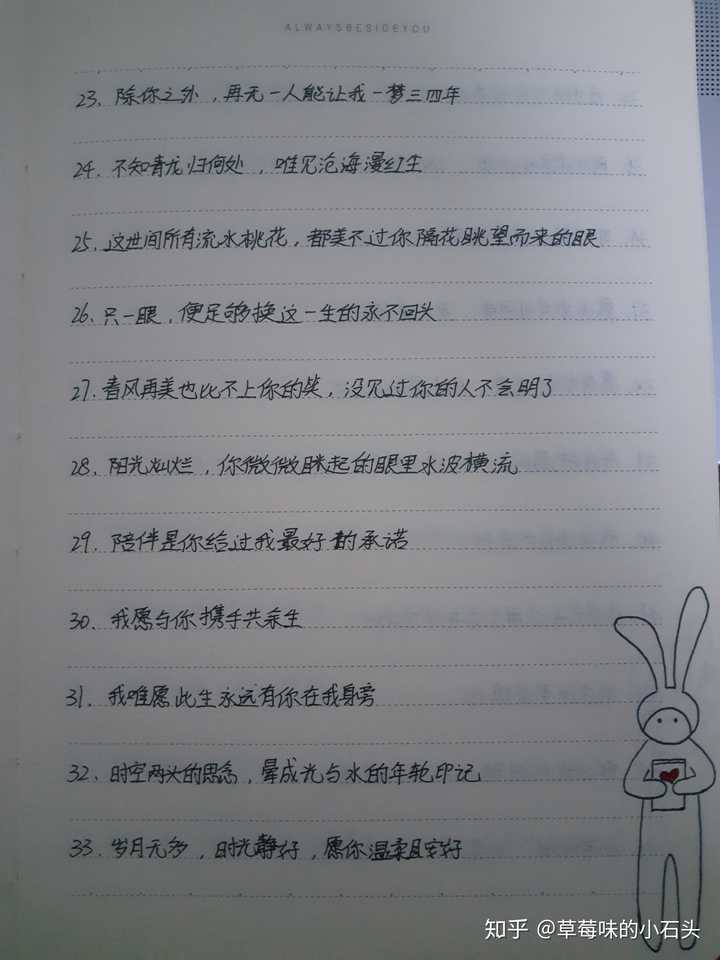 ALWAYSBESIDEYOU
23、除你之外，再无一人能让我一梦三四年
24、不知青龙归何处，唯见沧海漫红尘
25、这世间所有流水桃花，都美不过你隔花眺望而来的眼
26、只一眼，便足够换这一生的永不回头
27、春风再美也比不上你的笑，没见过你的人不会明了
28、阳光灿烂，你微微眯起的眼里水波横流
29、陪伴是你给过我最好的承诺
30、我愿与你携手共余生
31、我唯愿此生永远有你在我身旁
32、时空两头的思念，晕成光与水的年轮印记
33、岁月无多，时光静好，愿你温柔且安好
知乎 @草莓味的小石头